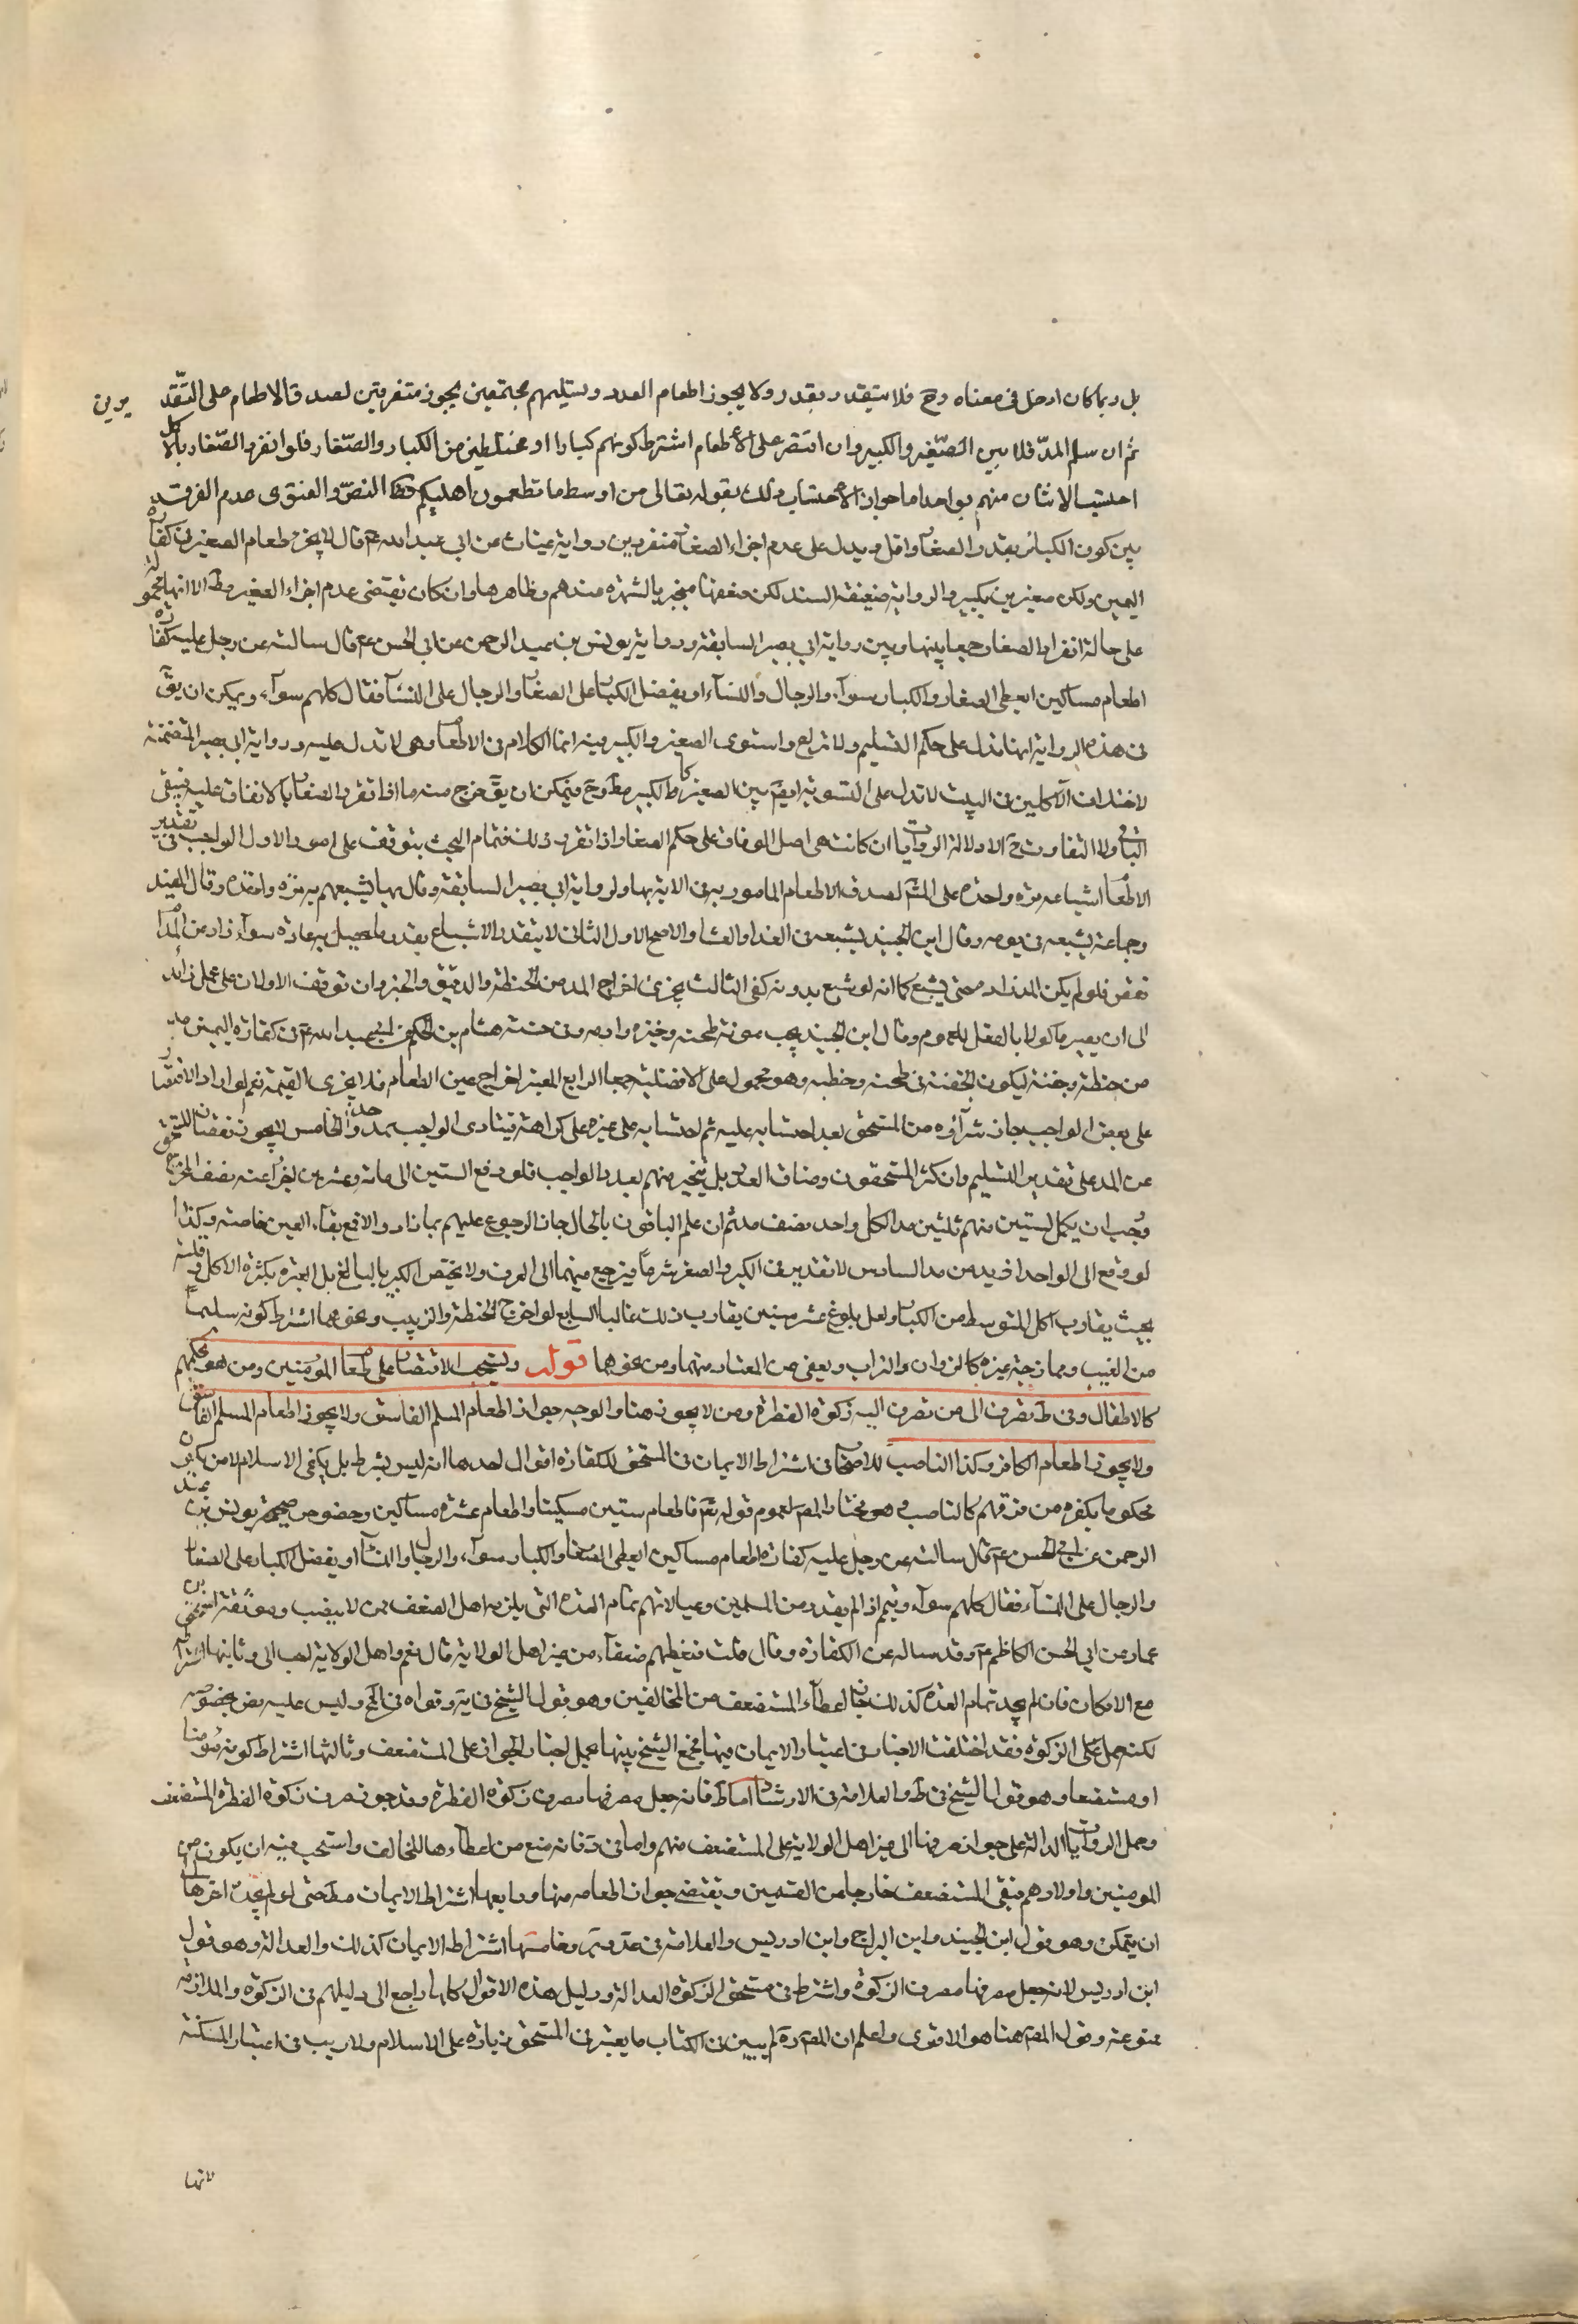 بل ربما كان ادخل في معناه وح فلا يتقدر بقدر ولا يجوز اطعام العدد وتسليمهم مجتمعين يجوز متفرقين لصدق الاطعام على التقديرين
ثم ان سلم المد فلا بين الصغير والكبير وان اقتصر على الاطعام اشترط كونهم كبارا او مختلطين من الكبار والصغار فلو انفرد الصغار بالاكل
احتسب الاثنان منهم بواحد اما جواز الاحتساب وذلك بقوله تعالى من اوسط ما تطعمون اهليكم النص والفتوى عدم الفرق
بين كون الكبار بقدر الصغار او اقل ويدل على عدم اجزاء الصغار منفردين رواية غياث عن ابي عبد الله ع قال لا يجزي طعام الصغير في كفارة
اليمين ولكن صغيرين بكبير والرواية ضعيفة السند لكن ضعفها منجبر بالشهرة عندهم وظاهرها وان كان يقتضي عدم اجزاء الصغير مط الا انها محمولة
على حالة انفراد الصغار جمعا بينها وبين رواية ابي بصير السابقة ورواية يونس بن عبد الرحمن عن ابي الحسن ع قال سالته عن رجل عليه كفارة
اطعام مساكين ايعطى الصغار والكبار سواء والرجال والنساء او يفضل الكبار على الصغار والرجال على النساء فقال كلهم سواء ويمكن ان يق
في هذه الرواية انها تدل على حكم التسليم ولا نزاع واستوى الصغير والكبير فيه انما الكلام في الاطعام وهي لا تدل عليه ورواية ابي بصير المتضمنة
لاختلاف الآكلين في البيت لا تدل على التسوية ايضا بين الصغير والكبير مط وح فيمكن ان يق خرج منه ما اذا انفرد الصغار بالاتفاق عليه فيبقى
الباقي ولا التفاوت ح الا دلالة الروايات ان كانت هي اصل الوفاق على حكم الصغار اذا تقرر ذلك فتمام البحث يتوقف على امور الاول الواجب في تقدير
الاطعام اشباعه مرة واحدة على المش لصدق الاطعام المامور به في الاية بها ولرواية ابي بصير السابقة وقال بها يشبعهم به مرة واحدة وقال المفيد
وجماعة يشبعه في يومه وقال ابن الجنيد يشبعه في الغدا والعشا والاصح الاول الثاني لا يتقدر الاشباع بقدر ما يحصل به عادة سواء زاد عن المد ام
نقص فلو لم يكن المد زاد حتى يشبع كما انه لو شبع بدونه كفى الثالث يجزئ اخراج المد من الحنطة والدقيق والخبز وان توقف الاولان على عمل زائد
الى ان يصير ماكولا بالفعل للعموم وقال ابن الجنيد يجب مونة طحنه وخبزه وادمه وفي حسنة هشام بن الحكم عن ابي عبد الله ع في كفارة اليمين مد
من حنطة وحفنة ليكون الحفنة في طحنه وحطبه وهو محمول على الافضلية جمعا الرابع المعتبر اخراج عين الطعام فلا يجزي القيمة نعم لو اراد الاقتصار
على بعض الواجب جاز شراؤه من المستحق بعد احتسابه عليه ثم احتسابه على غيره على كراهة فيتادى الواجب بمد واحد الخامس لا يجوز نقصان المستحق
عن المد على تقدير التسليم وان كثر المستحقون وضاق العدد بل يتخير منهم بعدد الواجب فلو دفع الستين الى مائة وعشرين لم يجز عنه نصف المخرج
وجب ان يكمل لستين منهم ثلثين مدا لكل واحد نصف مد ثم ان علم الباقون بالحال جاز الرجوع عليهم بما زاد والا فمع بقاء العين خاصة وكذا
لو دفع الى الواحد ازيد من مد السادس لا تقدير في الكبر والصغر شرعا فيرجع فيهما الى العرف ولا يختص الكبير بالبالغ بل العبرة بكثرة الاكل وقلته
بحيث يقارب اكل المتوسط من الكبار ولعل بلوغ عشر سنين يقارب ذلك غالبا السابع لو اخرج الحنطة والزبيب ونحوهما اشترط كونه سليما
من العيب وممازجة غيره كالزوان والتراب ويعفى عن المعتاد منهما ومن نحوهما قوله ويستحب الاقتصار على طعام المؤمنين ومن هو بحكمهم
كالاطفال وفي ط يصرف الى من تصرف اليه زكوة الفطرة ومن لا يجوز هناك والوجه جواز اطعام المسلم الفاسق ولا يجوز اطعام المسلم الفاسق
ولا يجوز اطعام الكافر وكذا الناصب للاصحاب في اشتراط الايمان في المستحق للكفارة اقوال احدها انه ليس بشرط بل يكفي الاسلام لامن يكون
محكوما بكفره من فرقهم كالناصب وهو مختار المص لعموم قوله تعم فاطعام ستين مسكينا واطعام عشرة مساكين وخصوص صحيحة يونس بن عبد
الرحمن عن ابي الحسن ع قال سالته عن رجل عليه كفارة اطعام مساكين ايعطى الصغار والكبار سواء والرجال والنساء او يفضل الكبار على الصغار
والرجال على النساء فقال كلهم سواء ويتمم اذا لم يقدر من المسلمين وعيالاتهم تمام العدة التي يلزمه اهل الضعف ممن لا ينصب وموثقة اسحق بن
عمار عن ابي الحسن الكاظم ع وقد ساله عن الكفارة وقال قلت فنعطيهم ضعفاء من غير اهل الولاية قال نعم واهل الولاية احب الى وثانيها اشتراطه
مع الامكان فان لم يجد تمام العدة كذلك جاز اعطاء المستضعف من المخالفين وهو قول الشيخ في ية وقواه في الج وليس عليه نص بخصوصه
لكنه حمل على الزكوة فقد اختلفت الاخبار في اعتبار الايمان فيها فجمع الشيخ بينها بحمل اخبار الجواز على المستضعف وثالثها اشتراط كونه مؤمنا
او مستضعفا وهو قول الشيخ في ط والعلامة في الارشاد اما ط فانه جعل مصرفها مصرف زكوة الفطرة وقد جوز صرف زكوة الفطرة المستضعف
وحمل الروايات الدالة على جواز صرفها الى غير اهل الولاية على المستضعف منهم واما في د فانه منع من اعطاءها للمخالف واستحب فيه ان يكون من
المومنين واولادهم فبقي المستضعف خارجا من القسمين ويقتضى جواز اطعامه منها ورابعها اشتراط الايمان مط حتى لو لم يجد اخرها الى
ان يتمكن وهو قول ابن الجنيد وابن البراج وابن ادريس والعلامة في عد وير وخامسها اشتراط الايمان كذلك والعدالة وهو قول
ابن ادريس لانه جعل مصرفها مصرف الزكوة واشترط في مستحق الزكوة العدالة ودليل هذه الاقوال كلها راجع الى دليلهم في الزكوة والملازمة
ممنوعة وقول المص هنا هو الاقوى واعلم ان المص ره لم يبين في الكتاب ما يعتبر في المستحق زيادة على الاسلام ولا ريب في اعتبار المسكنة